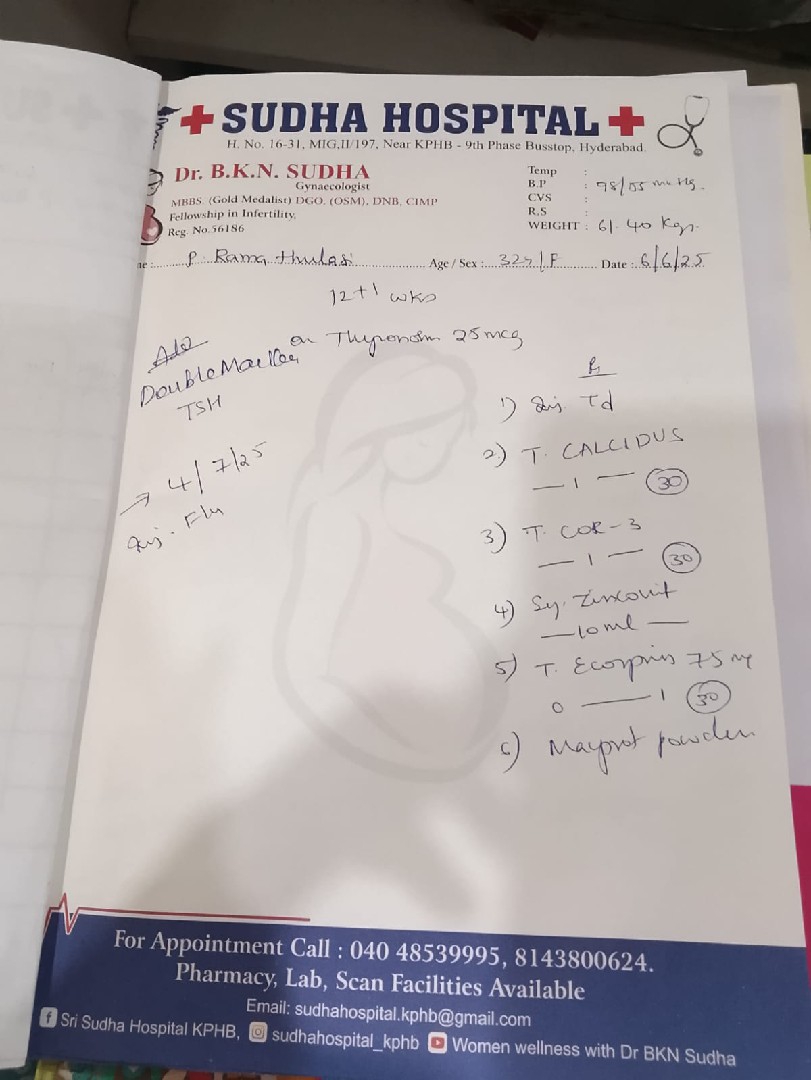 SUDHA HOSPITAL
H. No. 16-31, MIG,II/197, Near KPHB - 9th Phase Busstop, Hyderabad.
Dr. B.K.N. SUDHA
Gynaecologist
MBBS. (Gold Medalist) DGO, (OSM), DNB, CIMP
Fellowship in Infertility,
Reg. No.56186
Temp :
B.P : 98/55 mmHg.
CVS :
R.S :
WEIGHT : 61.40 Kgs.
P. Rama thulasi Age / Sex : 32y/F Date : 6/6/25
12+1 wks
on Thyronorm 25mcg
Adv
Double Marker
TSH
→ 4/7/25
Inj. Flu
Rx
1) Inj. Td
2) T. CALCIDUS
— 1 — (30)
3) T. COR-3
— 1 — (30)
4) Sy. Zincovit
— 10ml —
5) T. Ecosprin 75 mg
0 — 1 (30)
6) Mayprot powder
For Appointment Call : 040 48539995, 8143800624.
Pharmacy, Lab, Scan Facilities Available
Email: sudhahospital.kphb@gmail.com
Sri Sudha Hospital KPHB, sudhahospital_kphb Women wellness with Dr BKN Sudha